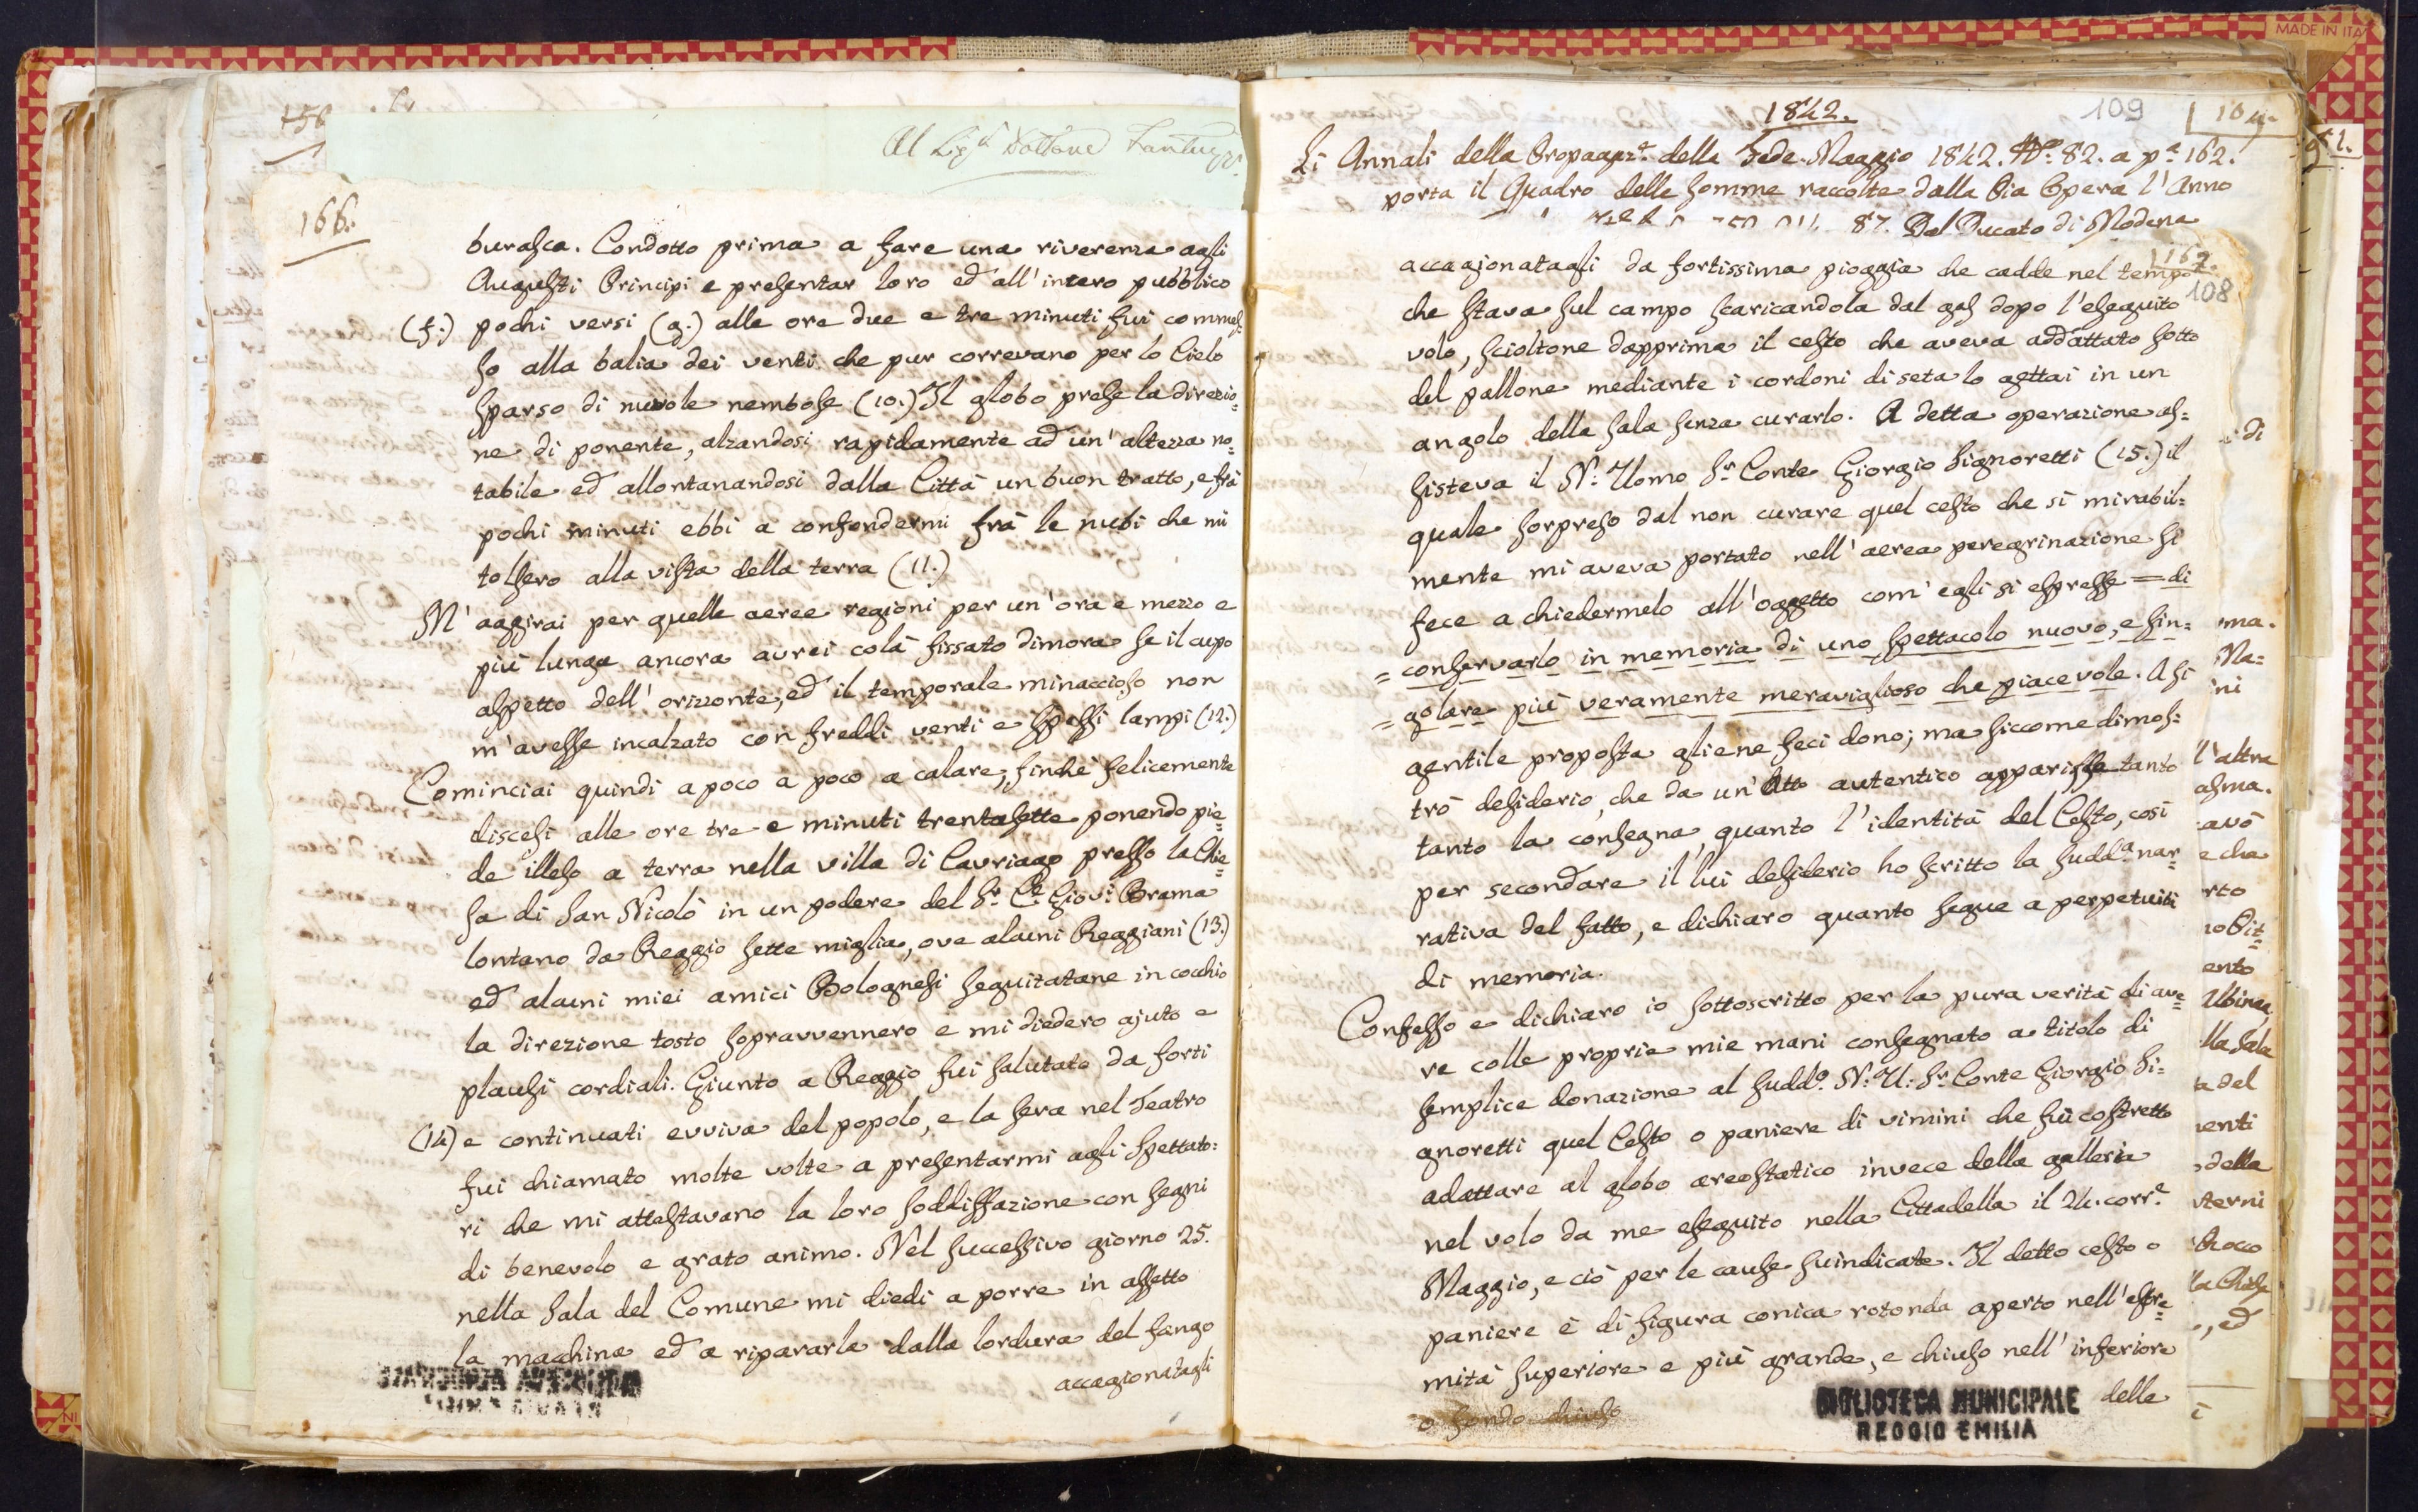 156
Al Sig.r Dottore Fantuzzi
166.
burasca. Condotto prima a fare una riverenza agli
Augusti Principi e presentar loro ed all'intero pubblico
(f.) pochi versi (g.) alle ore due e tre minuti fui commes=
so alla balia dei venti che pur correvano per lo Cielo
sparso di nuvole nembose (10.) Il globo prese la direzio=
ne di ponente, alzandosi rapidamente ad un'altezza no=
tabile ed allontanandosi dalla Città un buon tratto, e frà
pochi minuti ebbi a confondermi frà le nubi che mi
tolsero alla vista della terra (11.)
M'aggirai per quelle aeree regioni per un'ora e mezzo e
più lunga ancora avrei colà fissato dimora se il cupo
aspetto dell'orizzonte, ed il temporale minaccioso non
m'avesse incalzato con freddi venti e spessi lampi (12.)
Cominciai quindi a poco a poco a calare, finchè felicemente
discesi alle ore tre e minuti trentasette ponendo pie=
de illeso a terra nella villa di Cavriago presso la Chie=
sa di San Nicolò in un podere del Sr. Ce. Giovi. Brama
lontano da Reggio sette miglia, ove alcuni Reggiani (13.)
ed alcuni miei amici Bolognesi seguitatane in cocchio
la direzione tosto sopravvennero e mi diedero ajuto e
plausi cordiali. Giunto a Reggio fui salutato da forti
(14) e continuati evviva del popolo, e la sera nel Teatro
fui chiamato molte volte a presentarmi agli Spettato=
ri che mi attestavano la loro soddisfazione con segni
di benevolo e grato animo. Nel successivo giorno 25.
nella Sala del Comune mi diedi a porre in assetto
la macchina ed a ripararla dalla lordura del fango
accagionatagli
1842.
109
104.
Li Annali della Propagaz.e della Fede. Maggio 1842. No. 82. a pa. 162.
porta il Quadro delle somme raccolte dalla Pia Opera l'Anno
87. Dal Ducato di Modena
167.
108
accagionatagli da fortissima pioggia che cadde nel tempo
che stava sul campo scaricandola dal gas dopo l'eseguito
volo, scioltone dapprima il cesto che aveva addattato sotto
del pallone mediante i cordoni di seta lo gettai in un
angolo della sala senza curarlo. A detta operazione as=
sisteva il N: Uomo Sr. Conte Giorgio Signoretti (15.) il
quale sorpreso dal non curare quel cesto che sì mirabil=
mente mi aveva portato nell'aerea peregrinazione si
fece a chiedermelo all'oggetto com'egli si espresse = di
= conservarlo in memoria di uno spettacolo nuovo, e sin=
= golare più veramente meraviglioso che piacevole. A sì
gentile proposta gliene feci dono; ma siccome dimos=
trò desiderio, che da un'Atto autentico apparisse tanto
tanto la consegna, quanto l'identità del Cesto, così
per secondare il lui desiderio ho scritto la sudd.a nar=
rativa del fatto, e dichiaro quanto segue a perpetuità
di memoria.
Confesso e dichiaro io sottoscritto per la pura verità di ave=
re colle proprie mie mani consegnato a titolo di
semplice donazione al sudd.o N: U: Sr. Conte Giorgio Si=
gnoretti quel Cesto o paniere di vimini che fui costretto
adattare al globo areostatico invece della galleria
nel volo da me eseguito nella Cittadella il 24. corr.e
Maggio, e ciò per le cause suindicate. Il detto cesto o
paniere è di figura conica rotonda aperto nell'estre=
mità superiore e più grande, e chiuso nell'inferiore
o fondo chiuso
delle
BIBLIOTECA MUNICIPALE
REGGIO EMILIA
di
ma.
Ma=
ni
l'altra
asma.
cavò
e che
rto
no Pit=
ento
Albinea,
lla Sala
ta del
enti
della
terni
Rocco
la Chiesa
, ed
MADE IN ITA